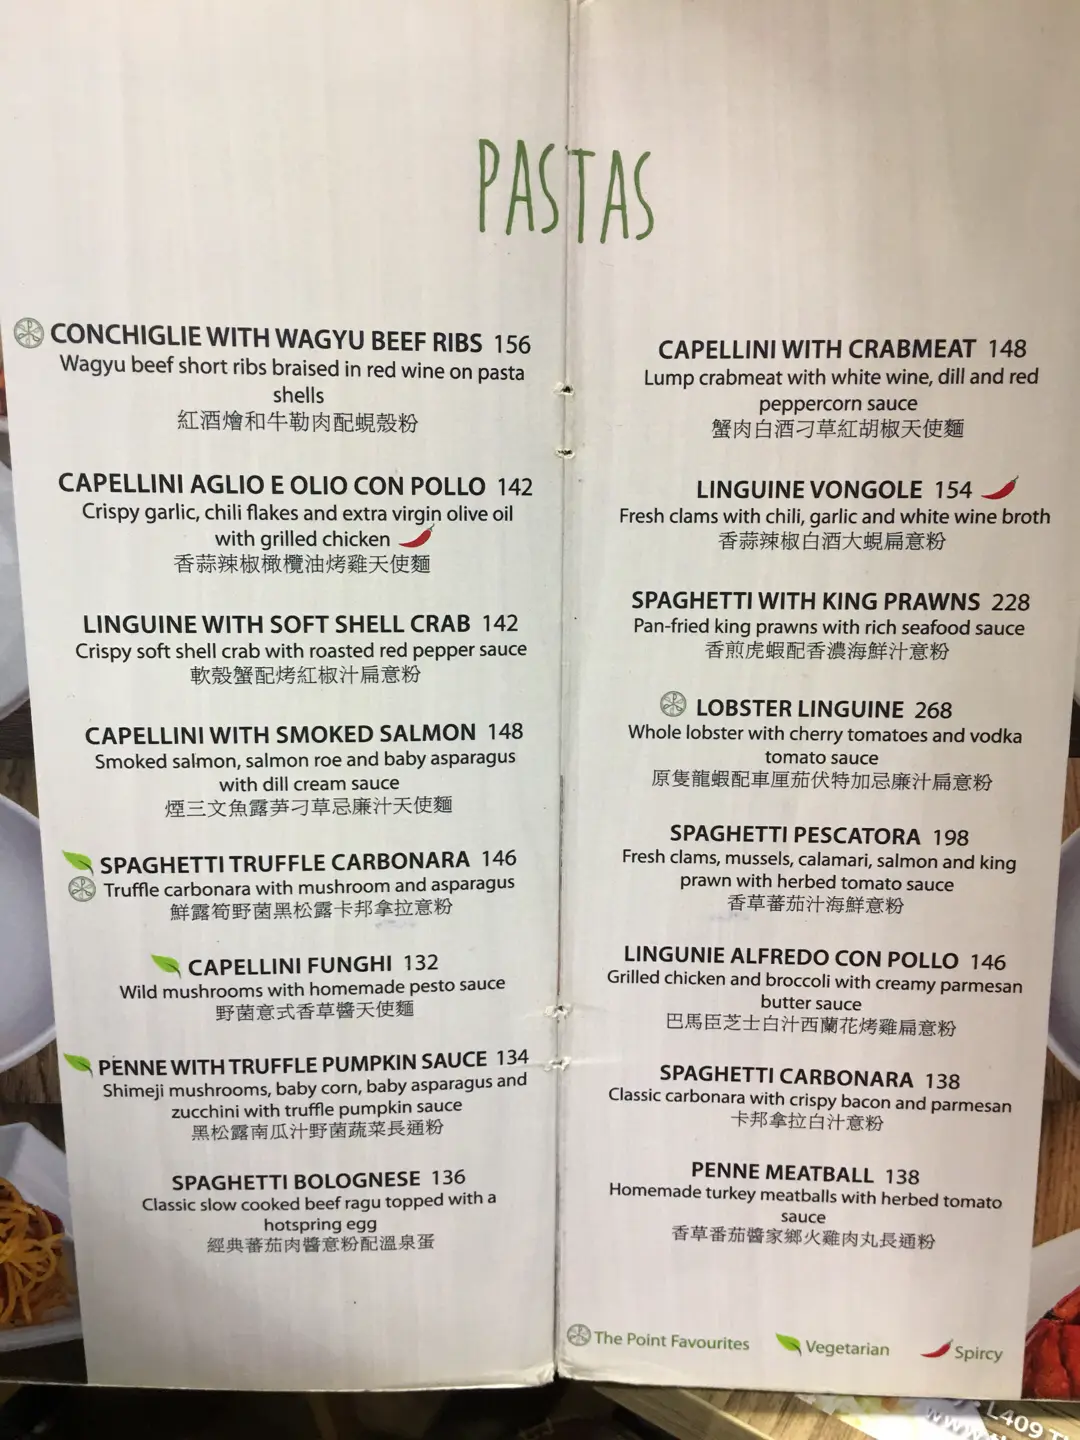 PASTAS
CONCHIGLIE WITH WAGYU BEEF RIBS 156
Wagyu beef short ribs braised in red wine on pasta
shells
紅酒燴和牛勒肉配蜆殼粉
CAPELLINI AGLIO E OLIO CON POLLO 142
Crispy garlic, chili flakes and extra virgin olive oil
with grilled chicken
香蒜辣椒橄欖油烤雞天使麵
LINGUINE WITH SOFT SHELL CRAB 142
Crispy soft shell crab with roasted red pepper sauce
軟殼蟹配烤紅椒汁扁意粉
CAPELLINI WITH SMOKED SALMON 148
Smoked salmon, salmon roe and baby asparagus
with dill cream sauce
煙三文魚露笋刁草忌廉汁天使麵
SPAGHETTI TRUFFLE CARBONARA 146
Truffle carbonara with mushroom and asparagus
鮮露筍野菌黑松露卡邦拿拉意粉
CAPELLINI FUNGHI 132
Wild mushrooms with homemade pesto sauce
野菌意式香草醬天使麵
PENNE WITH TRUFFLE PUMPKIN SAUCE 134
Shimeji mushrooms, baby corn, baby asparagus and
zucchini with truffle pumpkin sauce
黑松露南瓜汁野菌蔬菜長通粉
SPAGHETTI BOLOGNESE 136
Classic slow cooked beef ragu topped with a
hotspring egg
經典蕃茄肉醬意粉配溫泉蛋
CAPELLINI WITH CRABMEAT 148
Lump crabmeat with white wine, dill and red
peppercorn sauce
蟹肉白酒刁草紅胡椒天使麵
LINGUINE VONGOLE 154
Fresh clams with chili, garlic and white wine broth
香蒜辣椒白酒大蜆扁意粉
SPAGHETTI WITH KING PRAWNS 228
Pan-fried king prawns with rich seafood sauce
香煎虎蝦配香濃海鮮汁意粉
LOBSTER LINGUINE 268
Whole lobster with cherry tomatoes and vodka
tomato sauce
原隻龍蝦配車厘茄伏特加忌廉汁扁意粉
SPAGHETTI PESCATORA 198
Fresh clams, mussels, calamari, salmon and king
prawn with herbed tomato sauce
香草蕃茄汁海鮮意粉
LINGUNIE ALFREDO CON POLLO 146
Grilled chicken and broccoli with creamy parmesan
butter sauce
巴馬臣芝士白汁西蘭花烤雞扁意粉
SPAGHETTI CARBONARA 138
Classic carbonara with crispy bacon and parmesan
卡邦拿拉白汁意粉
PENNE MEATBALL 138
Homemade turkey meatballs with herbed tomato
sauce
香草番茄醬家鄉火雞肉丸長通粉
The Point Favourites Vegetarian Spircy
L409